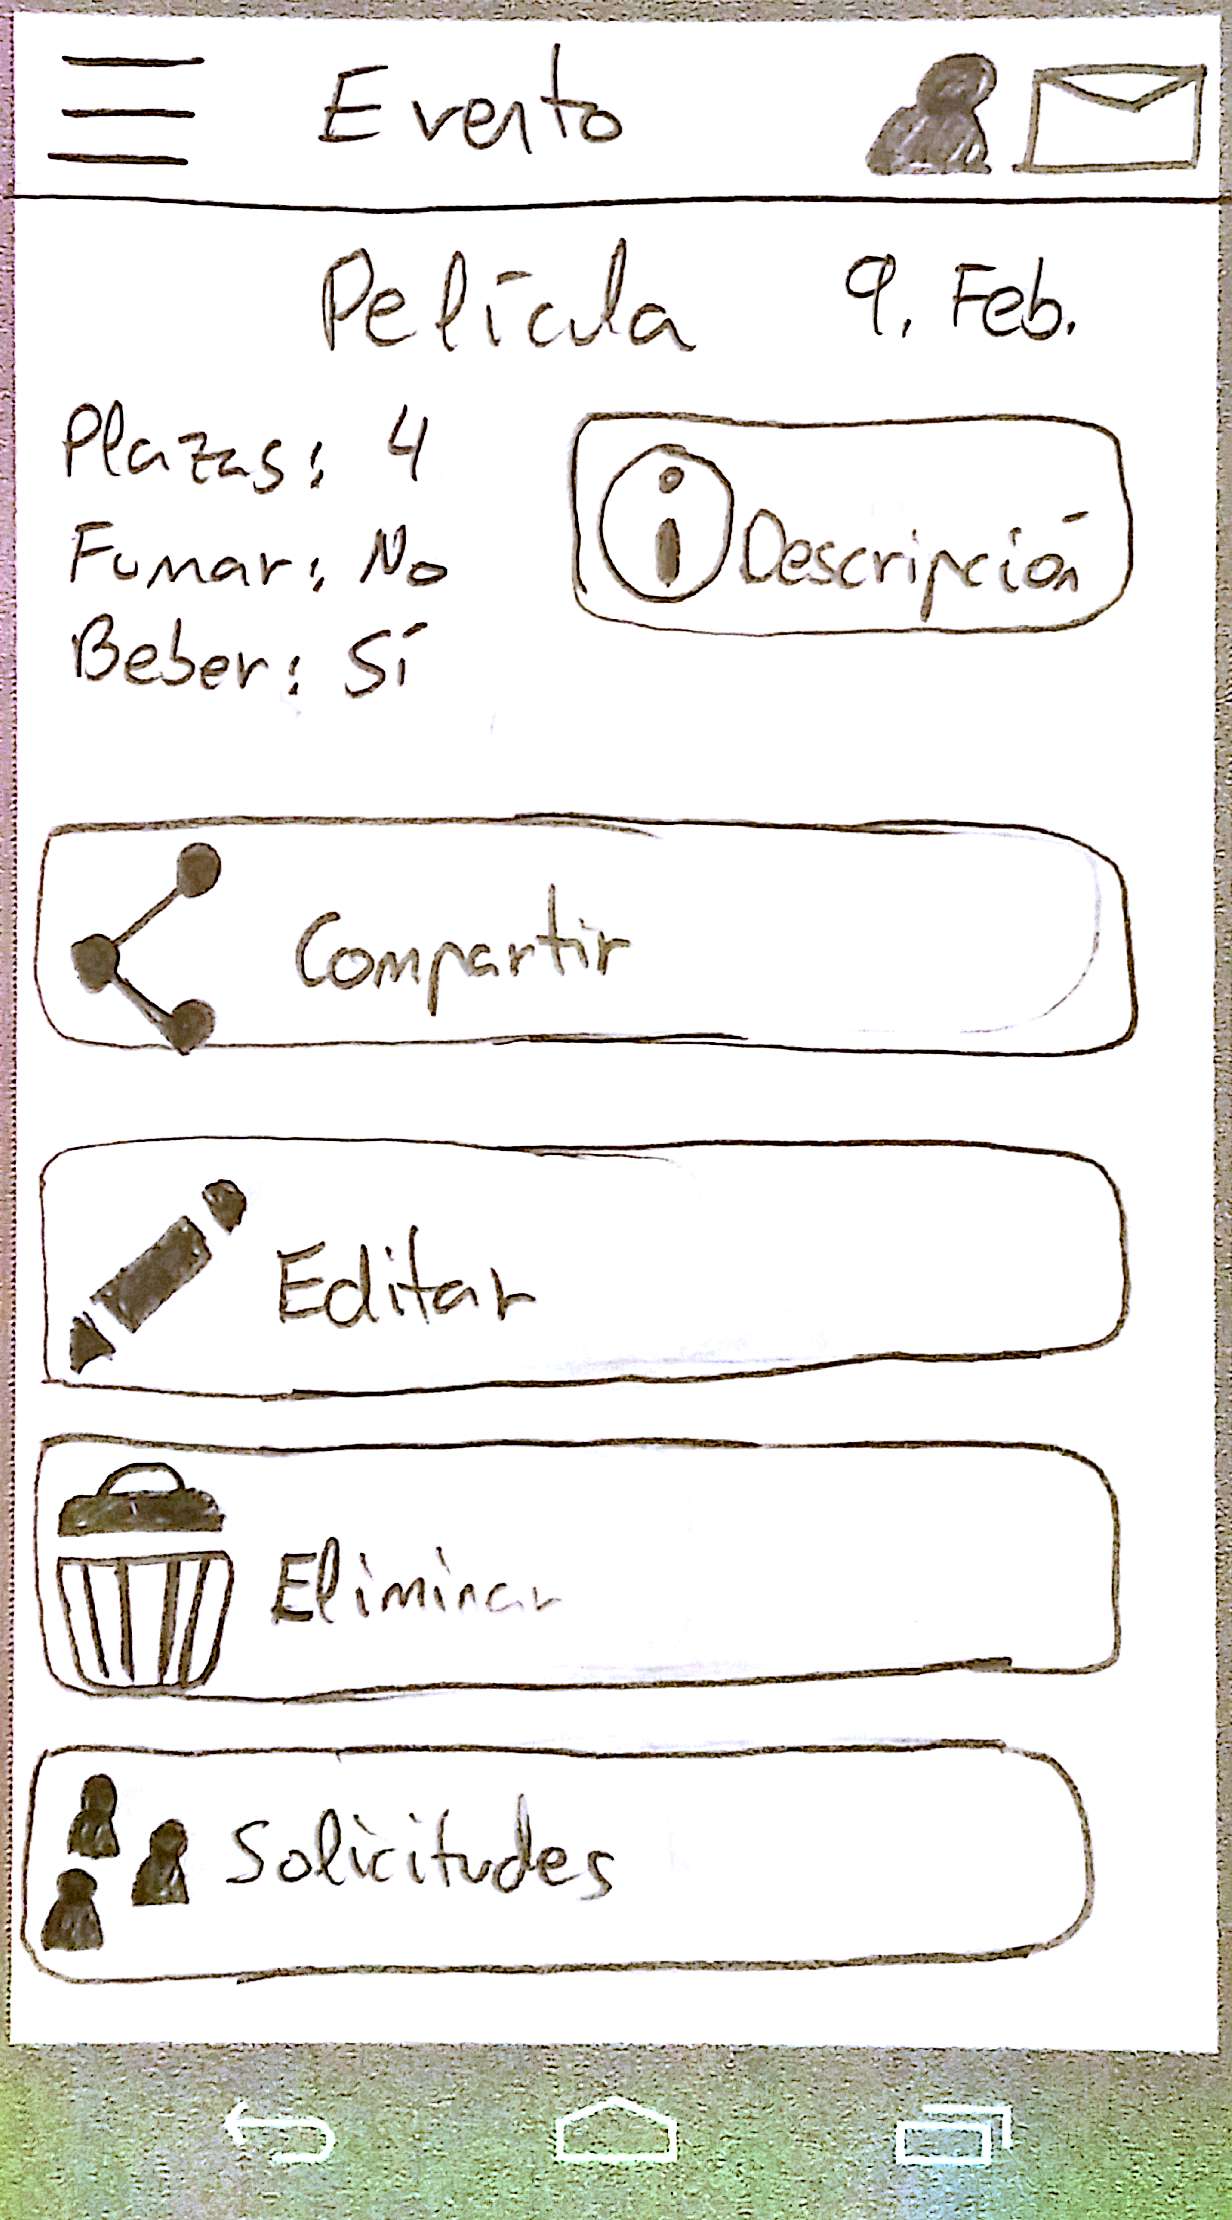 Evento
Película 9. Feb.
Plazas: 4
Fumar: No
Beber: Sí
Descripción
Compartir
Editar
Eliminar
Solicitudes